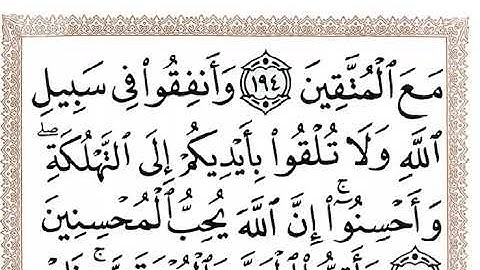 مَعَ ٱلْمُتَّقِينَ ١٩٤ وَأَنفِقُوا۟ فِى سَبِيلِ
ٱللَّهِ وَلَا تُلْقُوا۟ بِأَيْدِيكُمْ إِلَى ٱلتَّهْلُكَةِ ۖ
وَأَحْسِنُوٓا۟ ۚ إِنَّ ٱللَّهَ يُحِبُّ ٱلْمُحْسِنِينَ